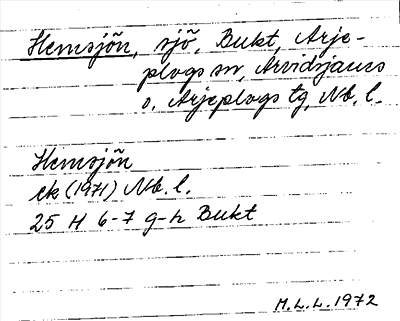 Hemsjön, sjö, Bukt, Arje-
plogs sn, Arvidsjaurs
o. Arjeplogs tg, Nb. l.
Hemsjön
ek (1971) Nb. l.
25 H 6-7 g-h Bukt
M.L.L. 1972